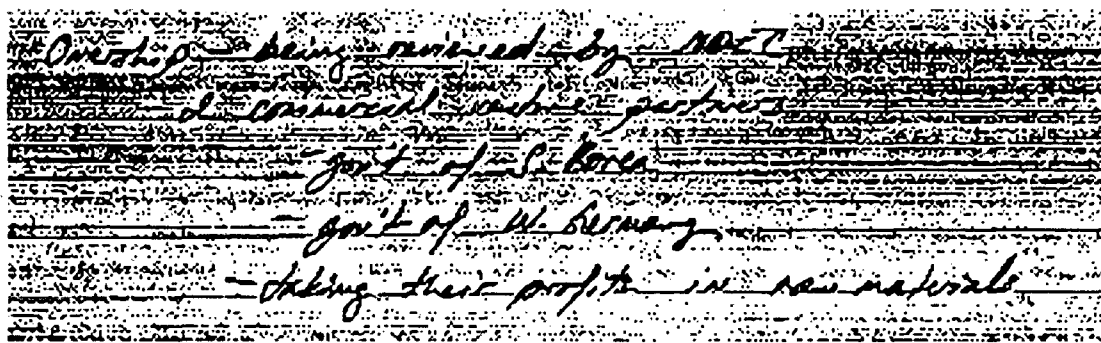 Ownership - being reviewed by
- 2 commercial venture partners
- gov't of S. Korea
- gov't of W. Germany
- taking their profits in raw materials